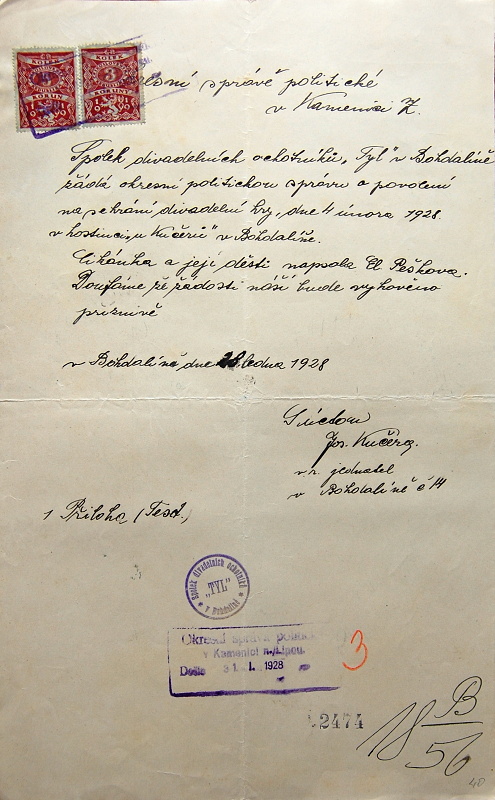 KOLEK
KOLEK
3
3
KORUN
KORUN
správě politické
v Kamenici L.
Spolek divadelních ochotníků "Tyl" v Bohdalíně
žádá okresní politickou správu o povolení
na sehrání divadelní hry, dne 4 února 1928.
v hostinci "u Kučerů" v Bohdalíně.
Cikánka a její děti napsala El Peškova.
Doufáme že žádosti naší bude vyhověno
příznivě
v Bohdalíně dne 28 ledna 1928
S úctou
Jos. Kučera.
jednatel
v Bohdalíně č 14
1 Příloha (Text.)
Spolek divadelních ochotníků
"TYL"
v Bohdalíně
Okresní správa politická
v Kamenici n./Lipou.
Došlo 31. I. 1928
3
2474
18 B/56
40